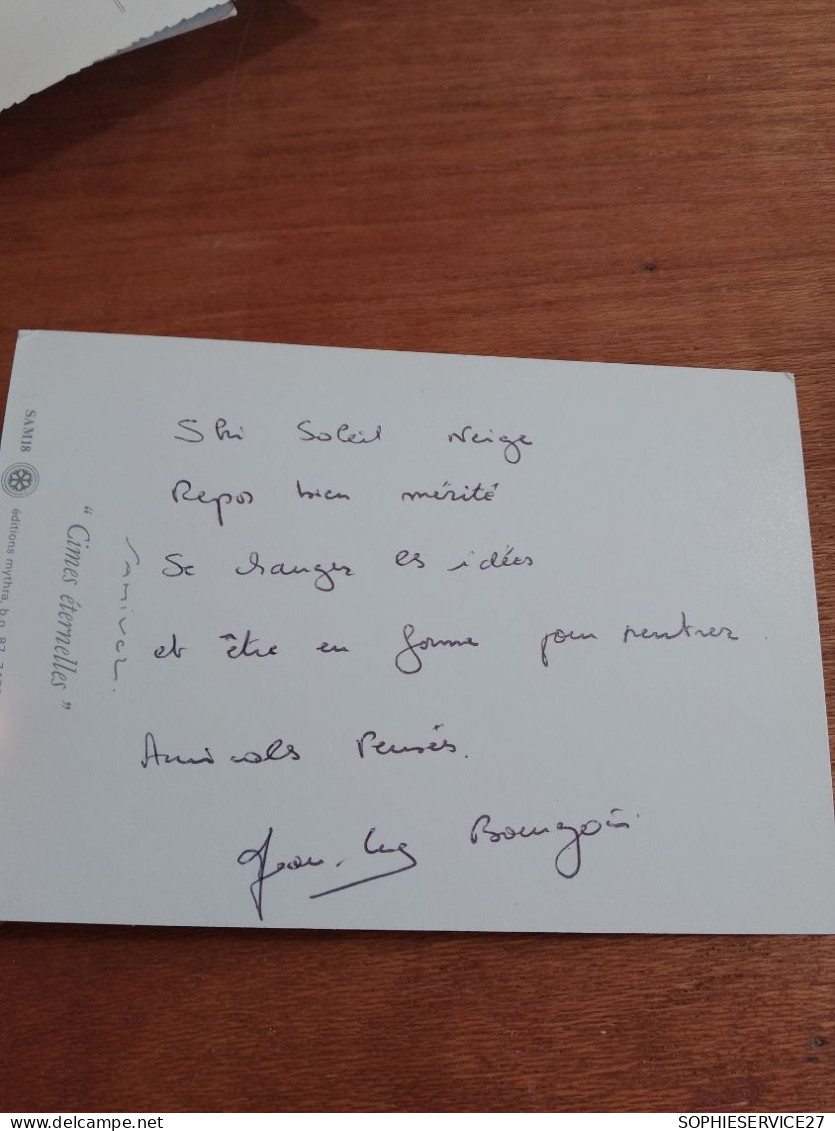 Ski Soleil Neige
Repos bien mérité
Se changer les idées
et être en forme pour rentrer.
Amicales Pensées.
Jean-Luc Bourgoin
SAM18
éditions mythra, b.p. 87
"Cimes éternelles"
www.delcampe.net
SOPHIESERVICE27